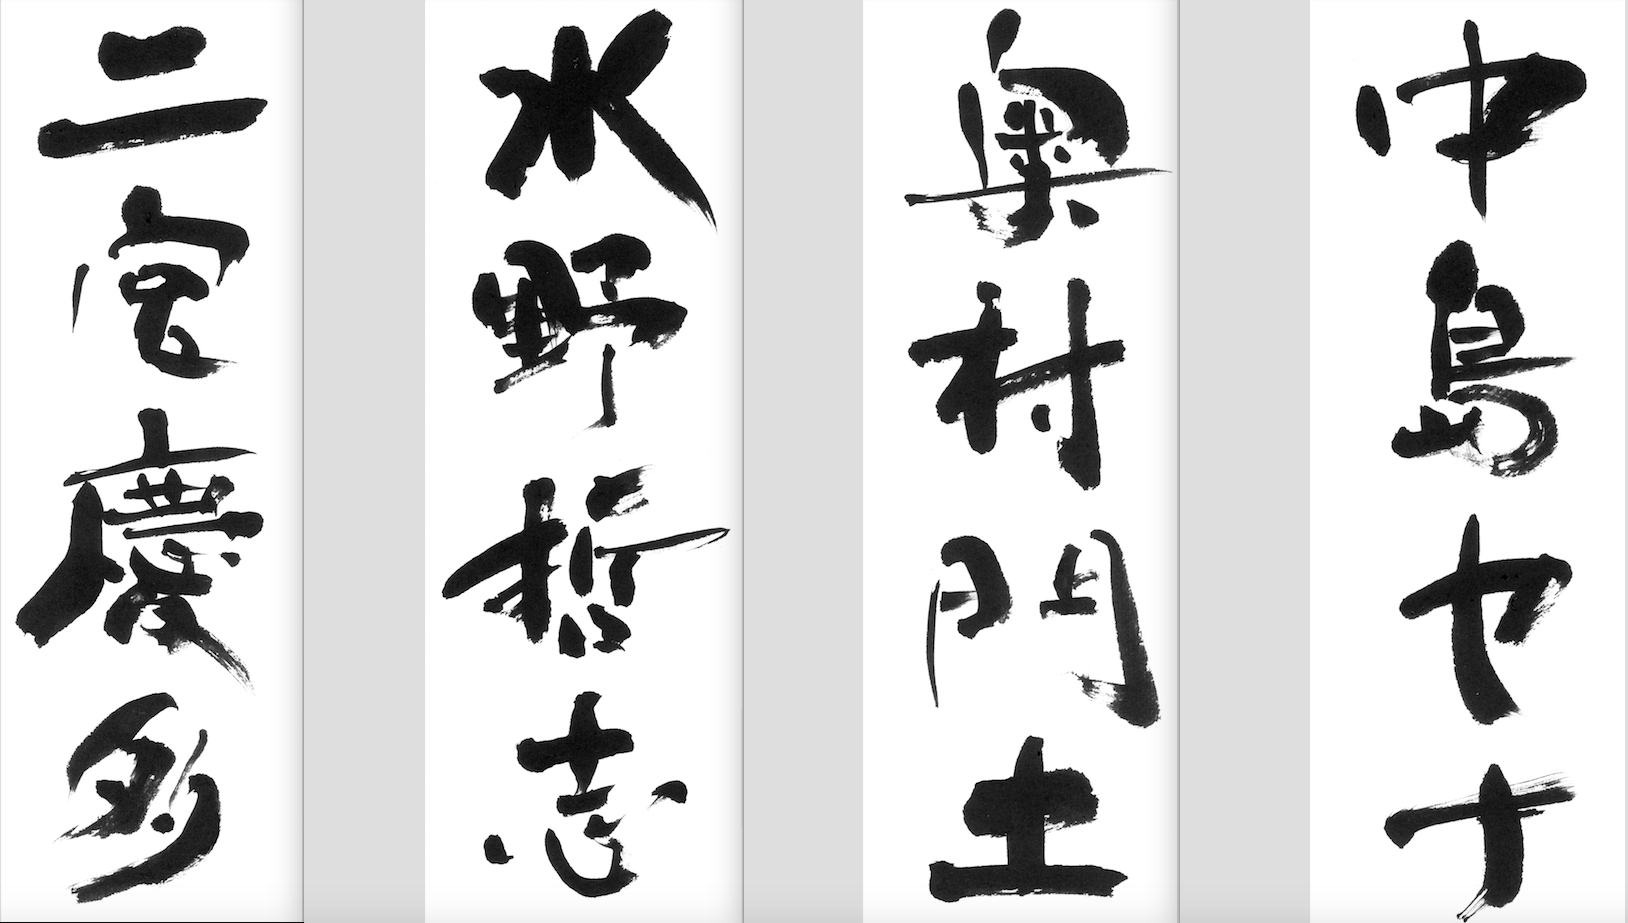 二宮慶多
水野哲志
奥村門土
中島セナ